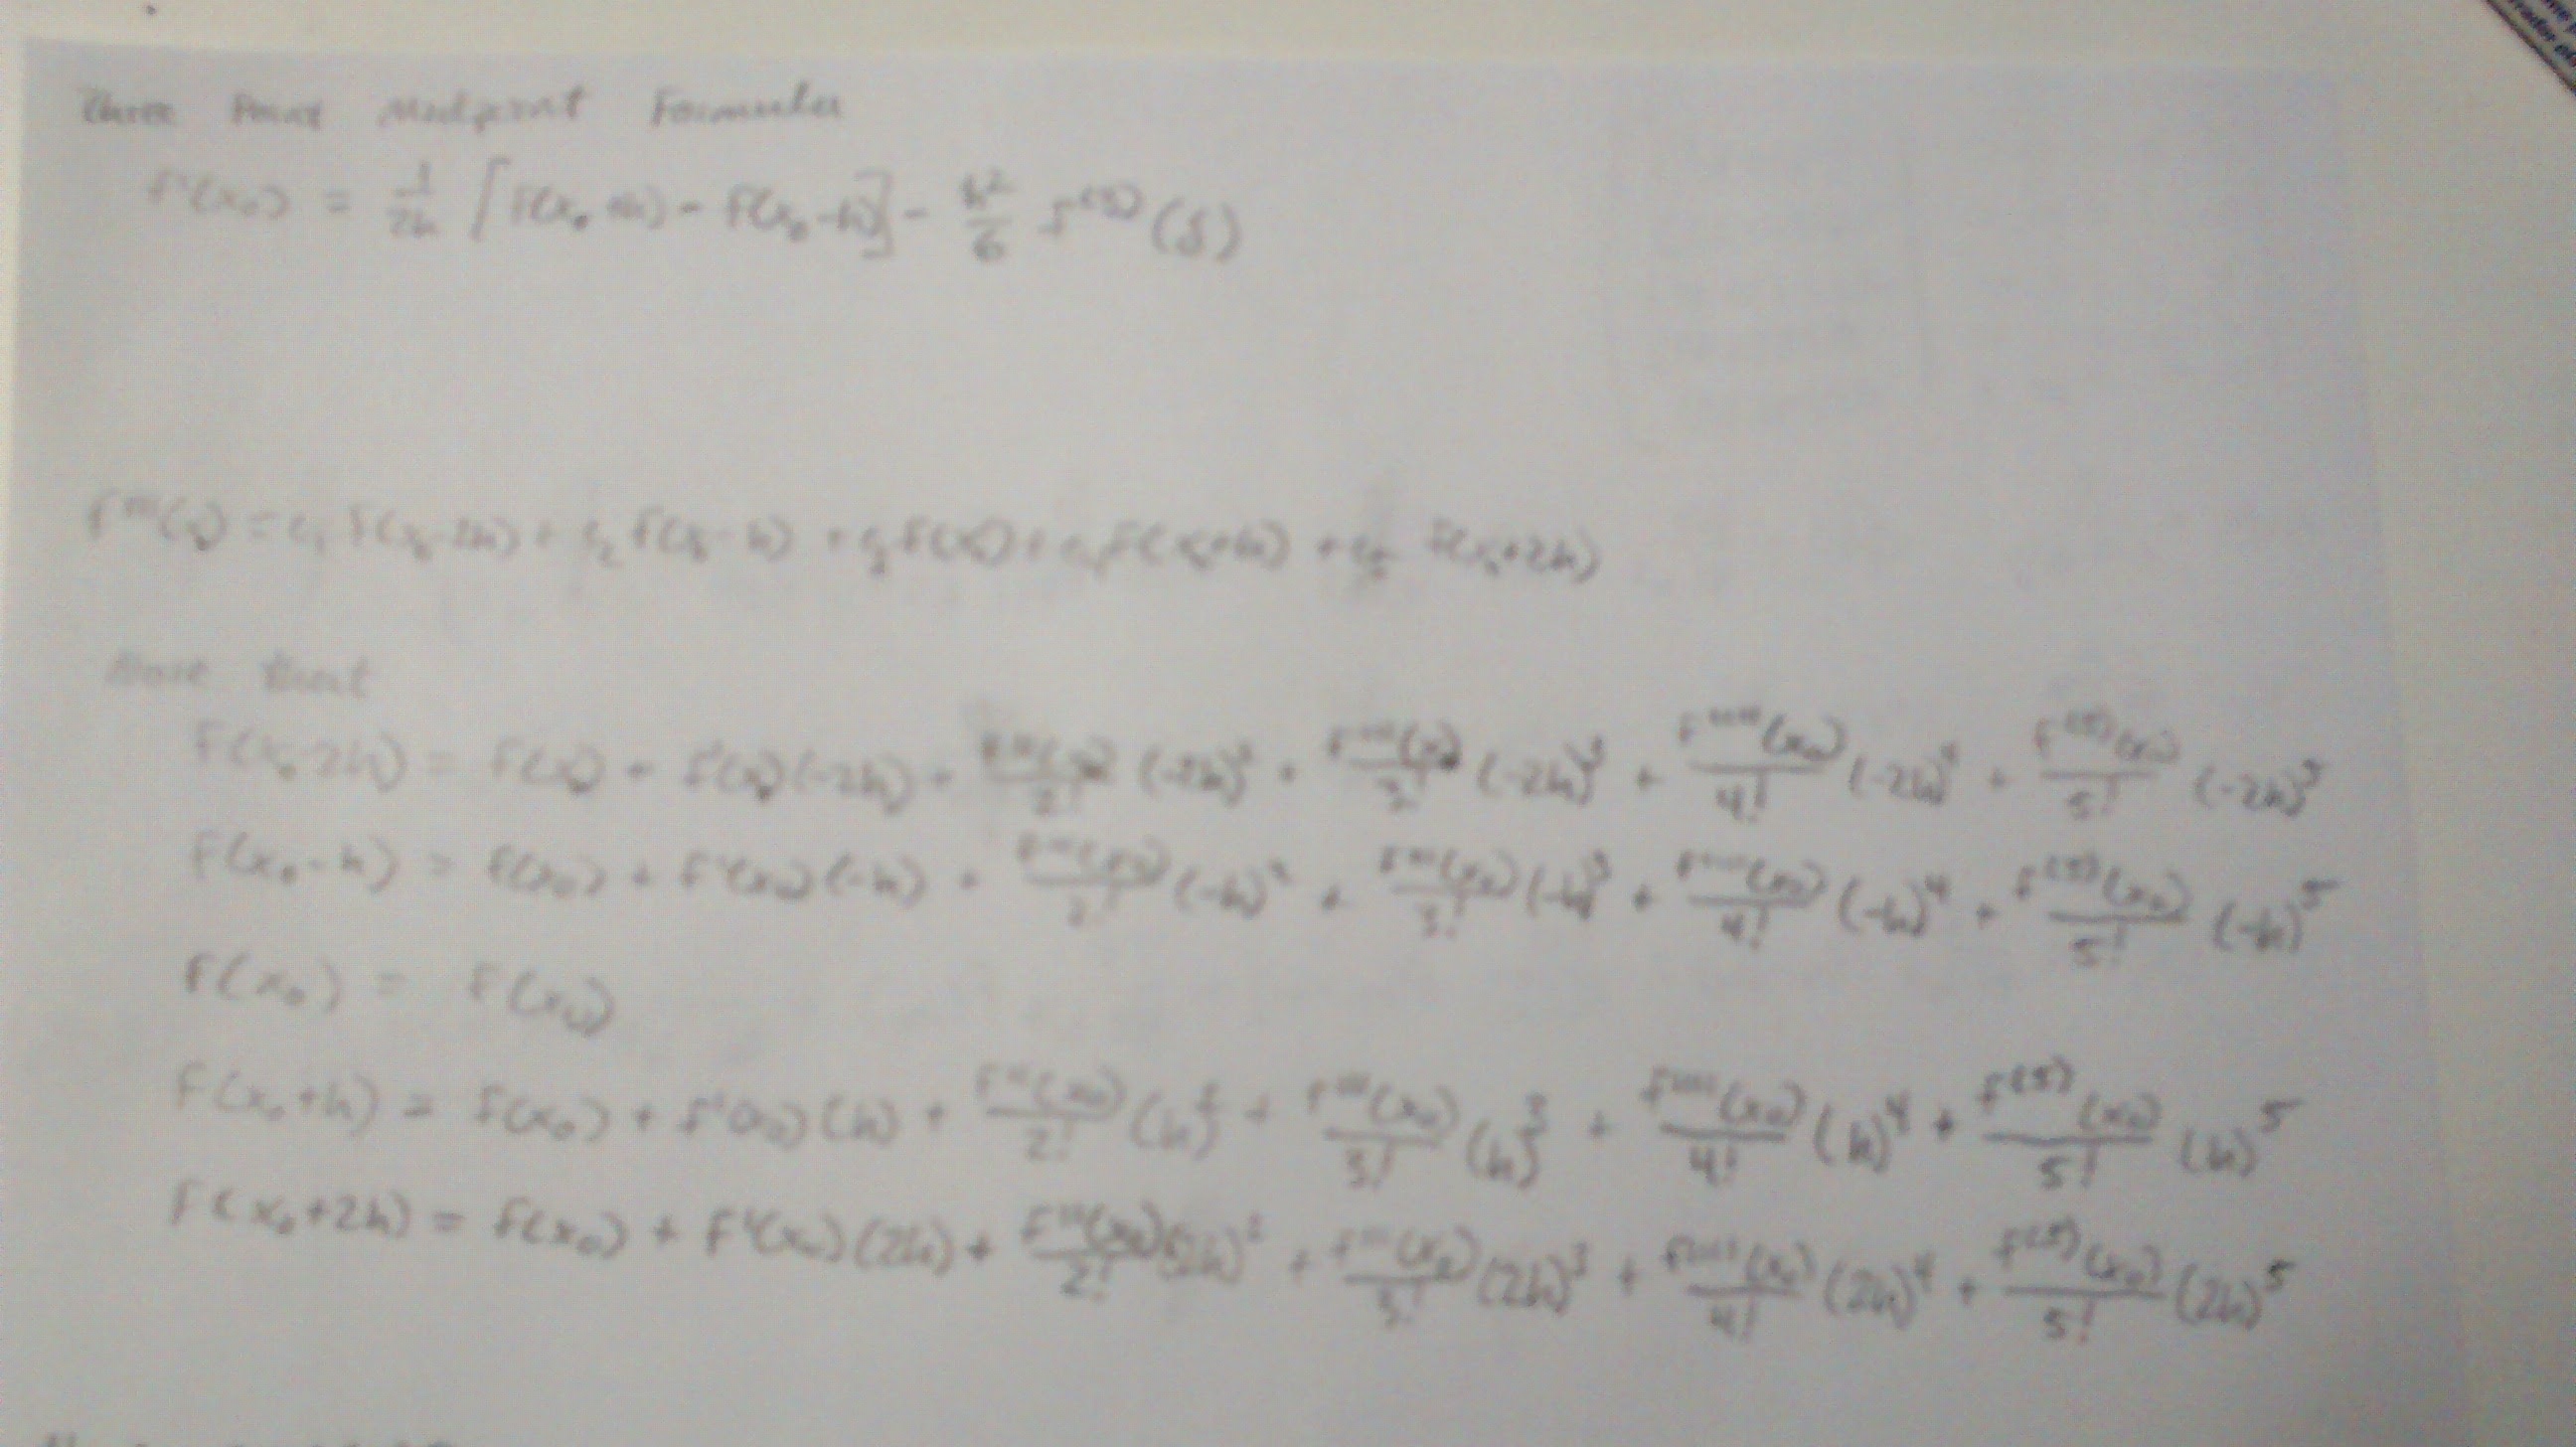 Three Point Midpoint Formula
f'(x₀) = 1/2h [f(x₀+h) - f(x₀-h)] - h²/6 f⁽³⁾(ξ)
f'''(x₀) = c₁ f(x₀-2h) + c₂ f(x₀-h) + c₃ f(x₀) + c₄ f(x₀+h) + c₅ f(x₀+2h)
Note that
f(x₀-2h) = f(x₀) + f'(x₀)(-2h) + f''(x₀)/2! (-2h)² + f'''(x₀)/3! (-2h)³ + f''''(x₀)/4! (-2h)⁴ + f⁽⁵⁾(x₀)/5! (-2h)⁵
f(x₀-h) = f(x₀) + f'(x₀)(-h) + f''(x₀)/2! (-h)² + f'''(x₀)/3! (-h)³ + f''''(x₀)/4! (-h)⁴ + f⁽⁵⁾(x₀)/5! (-h)⁵
f(x₀) = f(x₀)
f(x₀+h) = f(x₀) + f'(x₀)(h) + f''(x₀)/2! (h)² + f'''(x₀)/3! (h)³ + f''''(x₀)/4! (h)⁴ + f⁽⁵⁾(x₀)/5! (h)⁵
f(x₀+2h) = f(x₀) + f'(x₀)(2h) + f''(x₀)/2! (2h)² + f'''(x₀)/3! (2h)³ + f''''(x₀)/4! (2h)⁴ + f⁽⁵⁾(x₀)/5! (2h)⁵